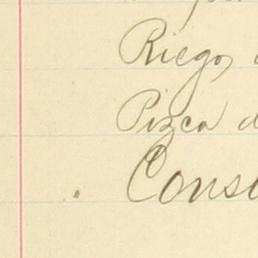 Riego,
Pizca d
Cons